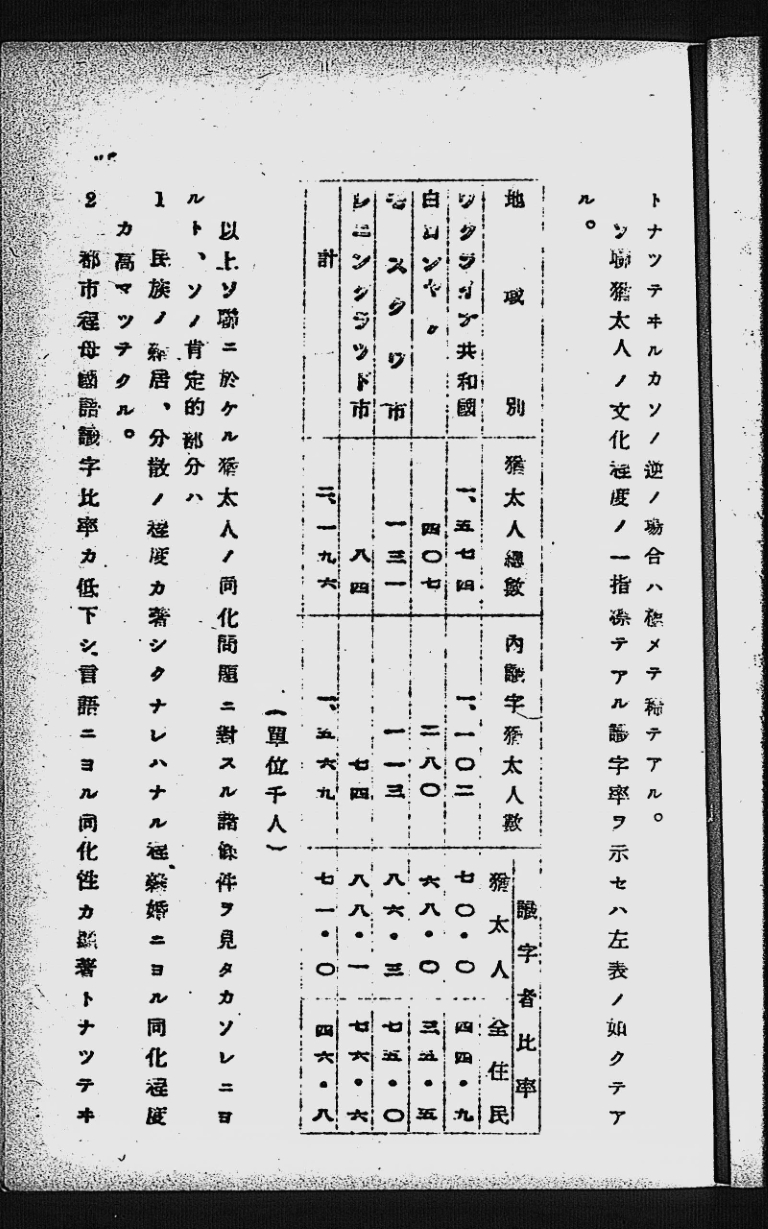 トナツテヰルカソノ逆ノ場合ハ極メテ稀テアル。
ソ聯猶太人ノ文化程度ノ一指標テアル識字率ヲ示セハ左表ノ如クテア
ル。
地域別 猶太人總數 內識字猶太人數 識字者比率 猶太人 全住民
ウクライナ共和國 一、五七四 一、一〇二 七〇・〇 四四・九
白ロシヤ〃 四〇七 二八〇 六八・〇 三五・五
モスクワ市 一三一 一一三 八六・三 七五・〇
レニングラツド市 八四 七四 八八・一 七六・六
計 二、一九六 一、五六九 七一・〇 四六・八
(單位千人)
以上ソ聯ニ於ケル猶太人ノ同化問題ニ對スル諸條件ヲ見タカソレニヨ
ルト、ソノ肯定的部分ハ
1 民族ノ雜居、分散ノ程度カ著シクナレハナル程雜婚ニヨル同化程度
カ高マツテクル。
2 都市程母國語識字比率カ低下シ、言語ニヨル同化性カ顯著トナツテヰ